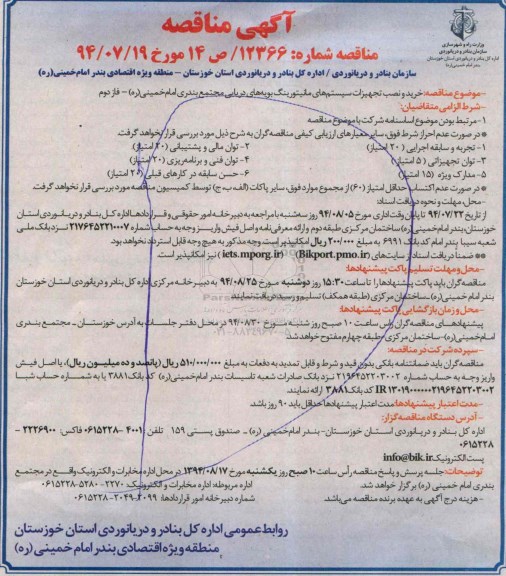 آگهی مناقصه
مناقصه شماره: ۱۲۳۶۶/ص ۱۴ مورخ ۹۴/۰۷/۱۹
وزارت راه و شهرسازی
سازمان بنادر و دریانوردی
اداره کل بنادر و دریانوردی استان خوزستان
بندر امام خمینی(ره)
سازمان بنادر و دریانوردی / اداره کل بنادر و دریانوردی استان خوزستان – منطقه ویژه اقتصادی بندر امام‌خمینی(ره)
-موضوع مناقصه: خرید و نصب تجهیزات سیستم‌های مانیتورینگ بویه‌های دریایی مجتمع بندری امام‌خمینی(ره) – فاز دوم
-شرط الزامی متقاضیان:
مرتبط بودن موضوع اساسنامه شرکت با موضوع مناقصه
* در صورت عدم احراز شرط فوق، سایر معیارهای ارزیابی کیفی مناقصه‌گران به شرح ذیل مورد بررسی قرار نخواهد گرفت.
۱- تجربه و سابقه اجرایی (۲۰ امتیاز) ۲- توان مالی و پشتیبانی (۲۰ امتیاز)
۳- توان تجهیزاتی (۵ امتیاز) ۴- توان فنی و برنامه‌ریزی (۲۰ امتیاز)
۵- مدارک ویژه (۱۵ امتیاز) ۶- حسن سابقه در کارهای قبلی (۲۰ امتیاز)
* در صورت عدم اکتساب حداقل امتیاز (۶۰) از مجموع موارد فوق، سایر پاکات (الف، ب، ج) توسط کمیسیون مناقصه مورد بررسی قرار نخواهد گرفت.
-محل، مهلت و نحوه دریافت اسناد:
از تاریخ ۹۴/۰۷/۲۲ تا پایان وقت اداری مورخ ۹۴/۰۸/۰۵ روز سه‌شنبه با مراجعه به دبیرخانه امور حقوقی و قراردادها اداره کل بنادر و دریانوردی استان
خوزستان، بندر امام خمینی(ره) ساختمان مرکزی طبقه دوم و ارائه معرفی‌نامه و اصل فیش واریز وجه به حساب شماره ۲۱۷۶۴۵۲۲۱۰۰۷ نزد بانک ملی
شعبه سیبا بندر امام کد بانک ۶۹۹۱ به مبلغ ۲۰۰/۰۰۰ ریال امکانپذیر است. وجه مذکور به هیچ وجه قابل استرداد نخواهد بود.
** ضمناً دریافت اسناد از سایت‌های (Bikport.pmo.ir) و (iets.mporg.ir) نیز امکانپذیر است.
-محل و مهلت تسلیم پاکت پیشنهادها:
مناقصه‌گران باید پاکت پیشنهادها را تا ساعت ۱۵:۳۰ روز دوشنبه مورخ ۹۴/۰۸/۲۵ به دبیرخانه مرکزی اداره کل بنادر و دریانوردی استان خوزستان
بندر امام خمینی (ره)، ساختمان مرکزی (طبقه همکف) تسلیم و رسید دریافت نمایند.
-محل و زمان بازگشایی پاکت پیشنهادها:
پیشنهادهای مناقصه‌گران راس ساعت ۱۰ صبح روز شنبه مورخ ۹۴/۰۸/۳۰ در محل دفتر جلسات به آدرس خوزستان – مجتمع بندری
امام خمینی(ره)- ساختمان مرکزی طبقه چهارم مفتوح خواهد شد.
-سپرده شرکت در مناقصه:
مناقصه‌گران باید ضمانتنامه بانکی بدون قید و شرط و قابل تمدید به دفعات به مبلغ ۵۱۰/۰۰۰/۰۰۰ ریال (پانصد و ده میلیون ریال)، یا اصل فیش
واریز وجه به حساب شماره ۲۱۹۶۴۵۲۲۰۲۰۰۲ نزد بانک صادرات شعبه تاسیسات بندر امام‌خمینی(ره) کد بانک ۳۸۸۱ یا به شماره حساب شبا
کد بانک ۳۸۸۱ ارائه نمایند.
-مدت اعتبار پیشنهادها: مدت اعتبار پیشنهادها حداقل باید ۹۰ روز باشد.
- آدرس دستگاه مناقصه‌گزار:
اداره کل بنادر و دریانوردی استان خوزستان- بندر امام خمینی (ره) – صندوق پستی ۱۵۹ تلفن: ۴۰۰۱ – ۰۶۱۵۲۲۸ فاکس: ۲۲۲۶۹۰۰ –
۰۶۱۵۲۲۸
پست الکترونیک info@bik.ir
توضیحات: جلسه پرسش و پاسخ مناقصه رأس ساعت ۱۰ صبح روز یکشنبه مورخ ۱۳۹۴/۰۸/۱۷ در محل اداره مخابرات و الکترونیک واقع در مجتمع
بندری امام خمینی (ره) برگزار خواهد شد. اداره مربوطه: اداره مخابرات و الکترونیک: ۲۲۷۰-۵۲۸۰-۰۶۱۵۲۲۸
- هزینه درج آگهی به عهده برنده مناقصه می‌باشد. شماره دبیرخانه امور قراردادها: ۲۰۹۹-۲۰۴۹-۰۶۱۵۲۲۸
روابط عمومی اداره کل بنادر و دریانوردی استان خوزستان
منطقه ویژه اقتصادی بندر امام خمینی (ره)